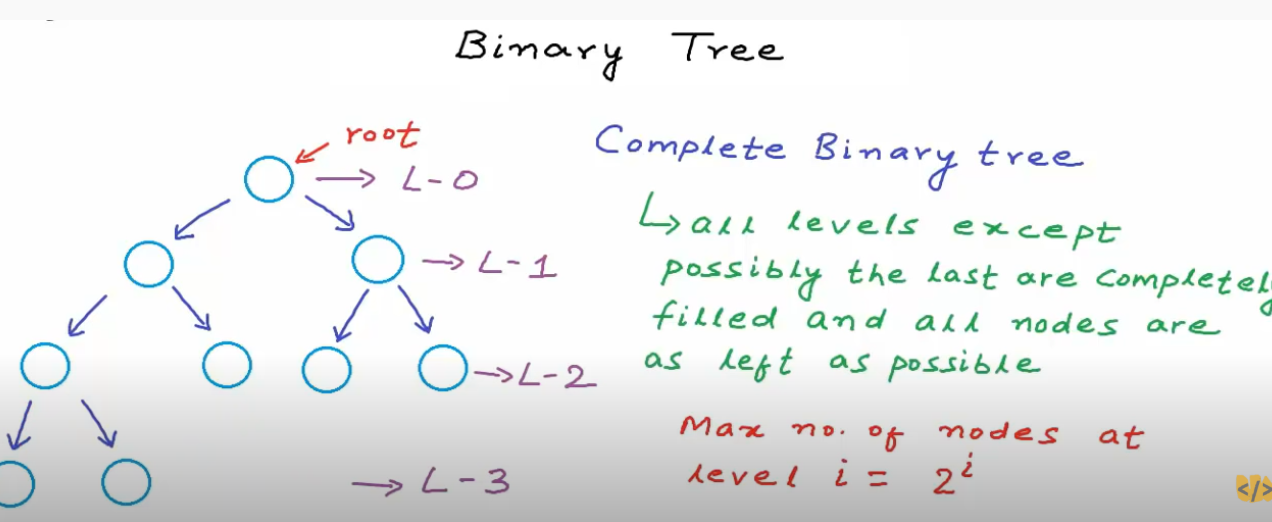 Binary Tree
root
L-0
L-1
L-2
L-3
Complete Binary tree
all levels except
possibly the last are completely
filled and all nodes are
as left as possible
Max no. of nodes at
level i = 2^i
</>